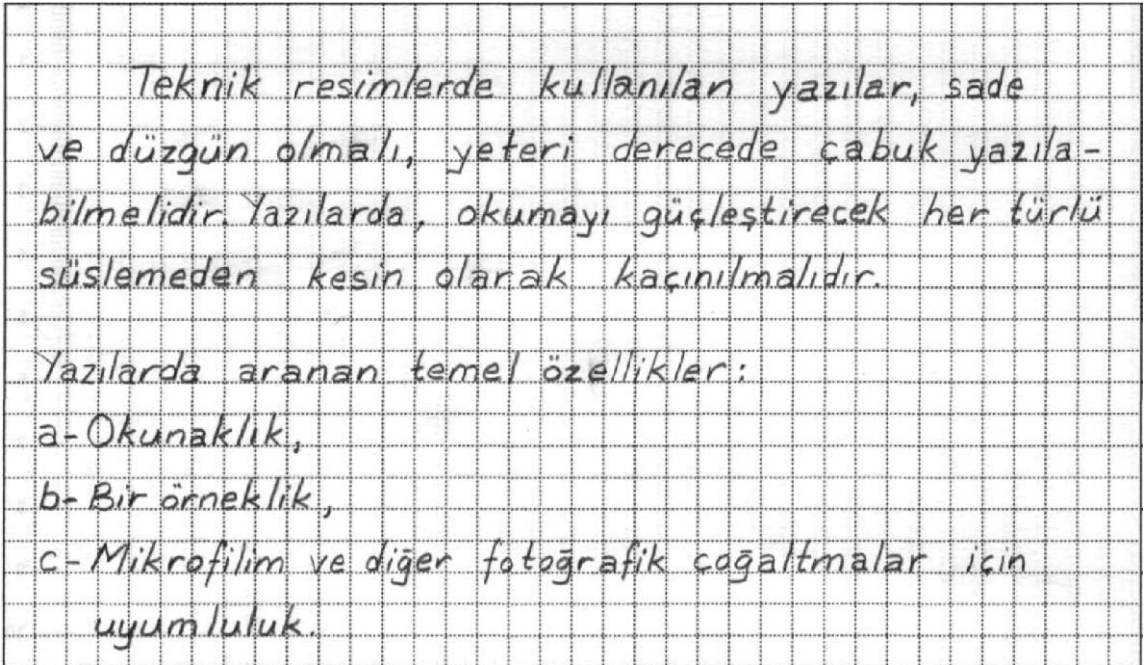 Teknik resimlerde kullanılan yazılar, sade
ve düzgün olmalı, yeteri derecede çabuk yazıla-
bilmelidir. Yazılarda, okumayı güçleştirecek her türlü
süslemeden kesin olarak kaçınılmalıdır.
Yazılarda aranan temel özellikler:
a- Okunaklık,
b- Bir örneklik,
c- Mikrofilim ve diğer fotoğrafik çoğaltmalar için
uyumluluk.